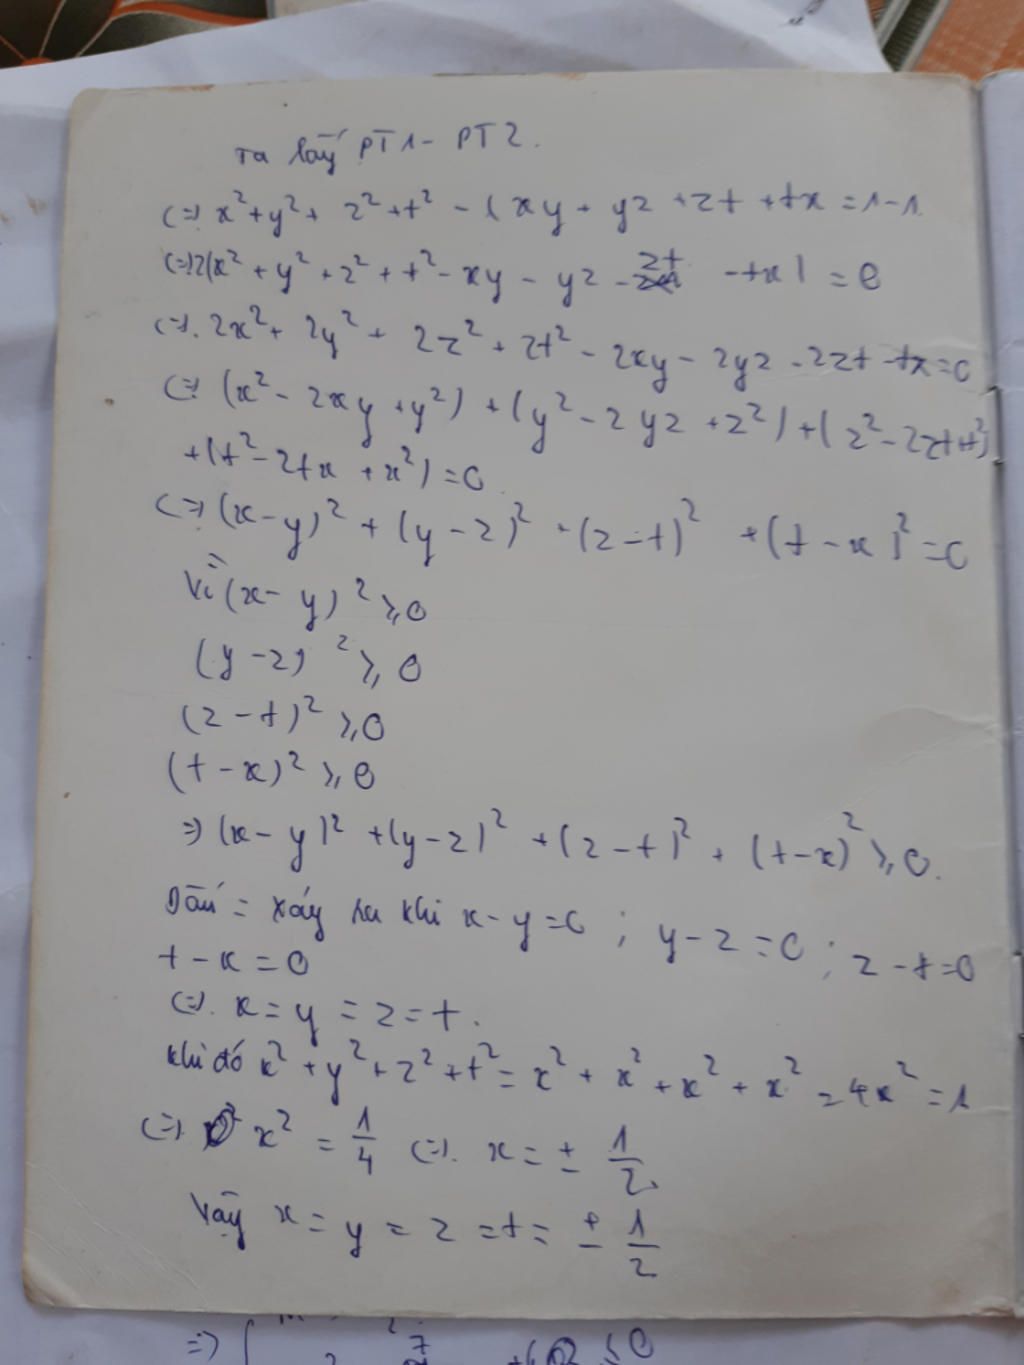 Ta lấy PT1 - PT2.
(=) x²+y²+ z²+t² - (xy + yz +zt +tx = 1-1
(=) 2(x² + y² + z² + t² - xy - yz - zt - tx) = 0
(=). 2x²+ 2y² + 2z² + 2t² - 2xy - 2yz - 2zt - tx = 0
(=) (x² - 2xy + y²) + (y² - 2yz + z²) + (z² - 2zt + t²)
+ (t² - 2tx + x²) = 0
(=) (x-y)² + (y-z)² + (z-t)² + (t-x)² = 0
Vì (x-y)² ≥ 0
(y-z)² ≥ 0
(z-t)² ≥ 0
(t-x)² ≥ 0
=) (x-y)² + (y-z)² + (z-t)² + (t-x)² ≥ 0.
Dấu = xảy ra khi x-y=0 ; y-z=0 ; z-t=0
t-x=0
(=). x = y = z = t.
Khi đó x² + y² + z² + t² = x² + x² + x² + x² = 4x² = 1
(=). x² = 1/4 (=). x = ± 1/2
Vậy x = y = z = t = ± 1/2